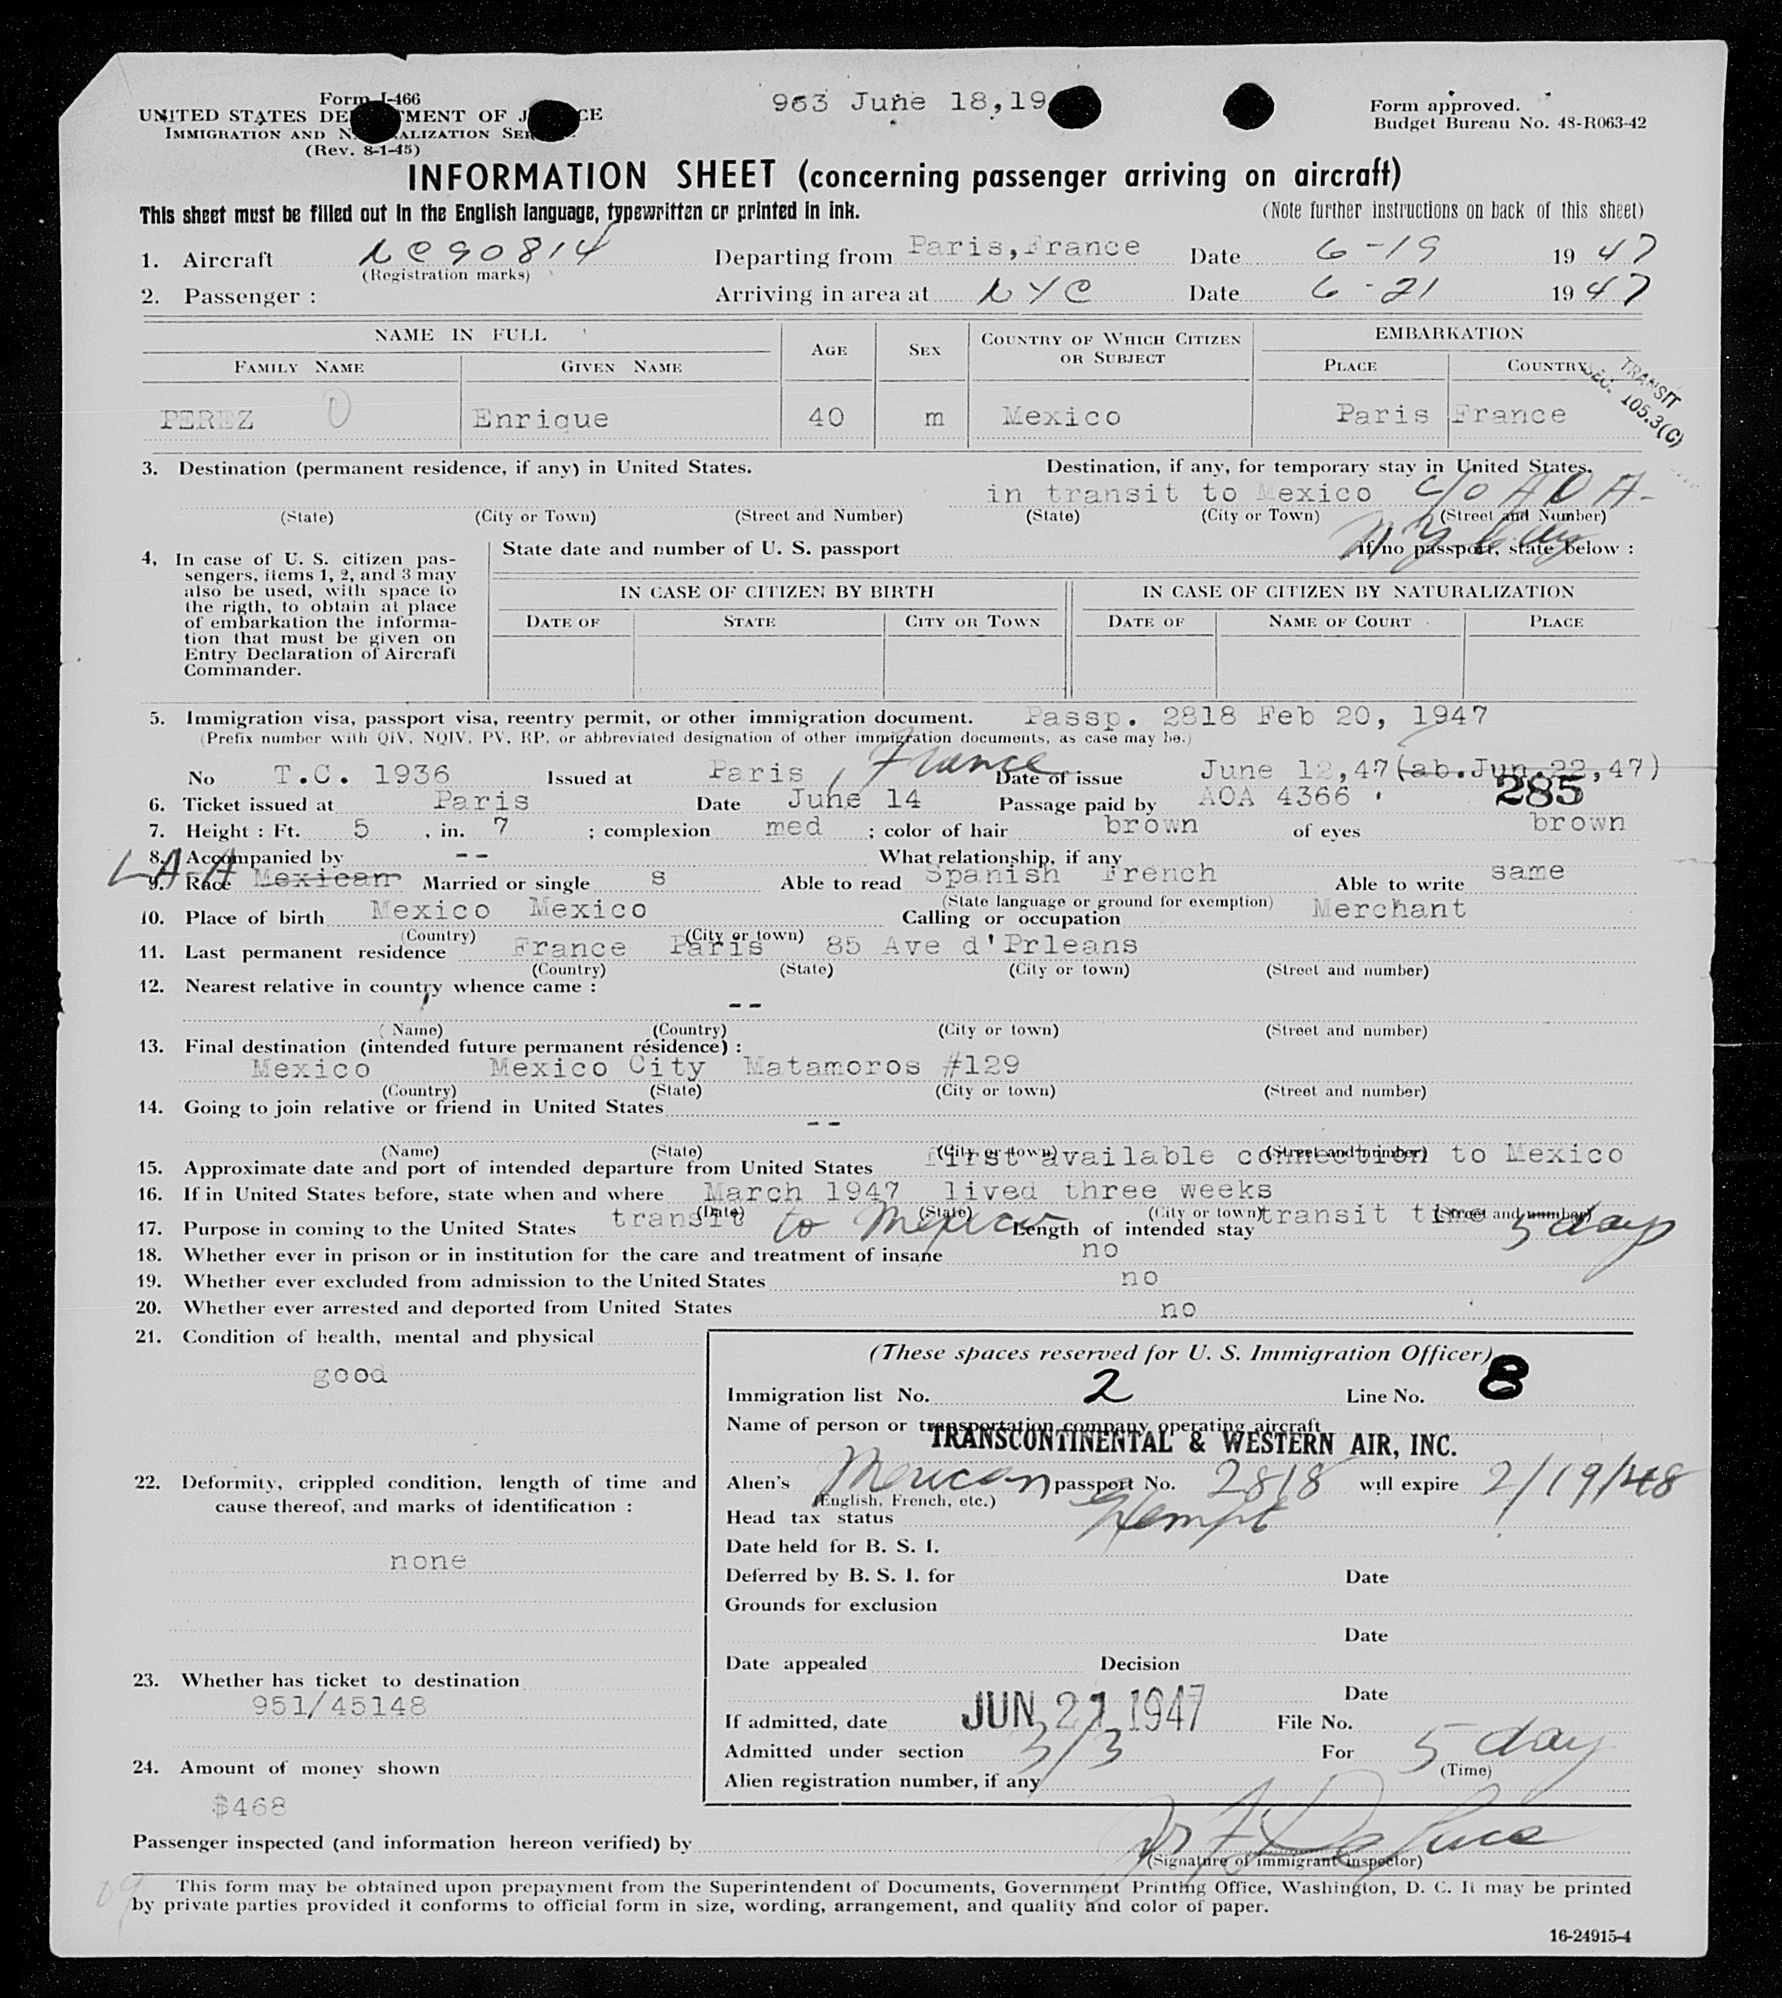 Form I-466
963 June 18,19
Form approved.
UNITED STATES DE MENT OF J CE
Budget Bureau No. 48-R063-42
IMMIGRATION AND N ALIZATION SER
(Rev. 8-1-45)
INFORMATION SHEET (concerning passenger arriving on aircraft)
This sheet must be filled out in the English language, typewritten or printed in ink.
(Note further instructions on back of this sheet)
1. Aircraft NC90814 Departing from Paris,France Date 6-19 1947
(Registration marks)
2. Passenger : Arriving in area at NYC Date 6-21 1947
NAME IN FULL
AGE SEX COUNTRY OF WHICH CITIZEN OR SUBJECT EMBARKATION
FAMILY NAME GIVEN NAME PLACE COUNTRY
TRANSIT
SEC. 105.3(C)
PEREZ Enrique 40 m Mexico Paris France
3. Destination (permanent residence, if any) in United States. Destination, if any, for temporary stay in United States.
in transit to Mexico c/o AOA-
(State) (City or Town) (Street and Number) (State) (City or Town) (Street and Number)
N Y City
4. In case of U. S. citizen pas-
sengers, items 1, 2, and 3 may
also be used, with space to
the rigth, to obtain at place
of embarkation the informa-
tion that must be given on
Entry Declaration of Aircraft
Commander.
State date and number of U. S. passport If no passport, state below :
IN CASE OF CITIZEN BY BIRTH IN CASE OF CITIZEN BY NATURALIZATION
DATE OF STATE CITY OR TOWN DATE OF NAME OF COURT PLACE
5. Immigration visa, passport visa, reentry permit, or other immigration document. Passp. 2818 Feb 20, 1947
(Prefix number with QIV, NQIV, PV, RP, or abbreviated designation of other immigration documents, as case may be.)
No T.C. 1936 Issued at Paris, France Date of issue June 12,47(ab.Jun.22,47)
6. Ticket issued at Paris Date June 14 Passage paid by AOA 4366 285
7. Height : Ft. 5 , in. 7 ; complexion med ; color of hair brown of eyes brown
8. Accompanied by -- What relationship, if any
LA-A
9. Race Mexican Married or single s Able to read Spanish French Able to write same
(State language or ground for exemption)
10. Place of birth Mexico Mexico Calling or occupation Merchant
(Country) (City or town)
11. Last permanent residence France Paris 85 Ave d'Prleans
(Country) (State) (City or town) (Street and number)
12. Nearest relative in country whence came :
--
(Name) (Country) (City or town) (Street and number)
13. Final destination (intended future permanent résidence) :
Mexico Mexico City Matamoros #129
(Country) (State) (City or town) (Street and number)
14. Going to join relative or friend in United States
--
(Name) (State) (City or town) (Street and number)
15. Approximate date and port of intended departure from United States first available connection to Mexico
16. If in United States before, state when and where March 1947 lived three weeks
(Date) (State) (City or town) (Street and number)
17. Purpose in coming to the United States transit to Mexico Length of intended stay transit time 5 days
18. Whether ever in prison or in institution for the care and treatment of insane no
19. Whether ever excluded from admission to the United States no
20. Whether ever arrested and deported from United States no
21. Condition of health, mental and physical
good
22. Deformity, crippled condition, length of time and
cause thereof, and marks of identification :
none
23. Whether has ticket to destination
951/45148
24. Amount of money shown
$468
(These spaces reserved for U. S. Immigration Officer)
Immigration list No. 2 Line No. 8
Name of person or transportation company operating aircraft
TRANSCONTINENTAL & WESTERN AIR, INC.
Alien's Mexican passport No. 2818 will expire 2/19/48
(English, French, etc.)
Head tax status Exempt
Date held for B. S. I.
Deferred by B. S. I. for Date
Grounds for exclusion
Date
Date appealed Decision
Date
If admitted, date JUN 21 1947 File No.
Admitted under section 3/3 For 5 day
(Time)
Alien registration number, if any
Passenger inspected (and information hereon verified) by
(Signature of immigrant inspector)
This form may be obtained upon prepayment from the Superintendent of Documents, Government Printing Office, Washington, D. C. It may be printed
by private parties provided it conforms to official form in size, wording, arrangement, and quality and color of paper.
16-24915-4